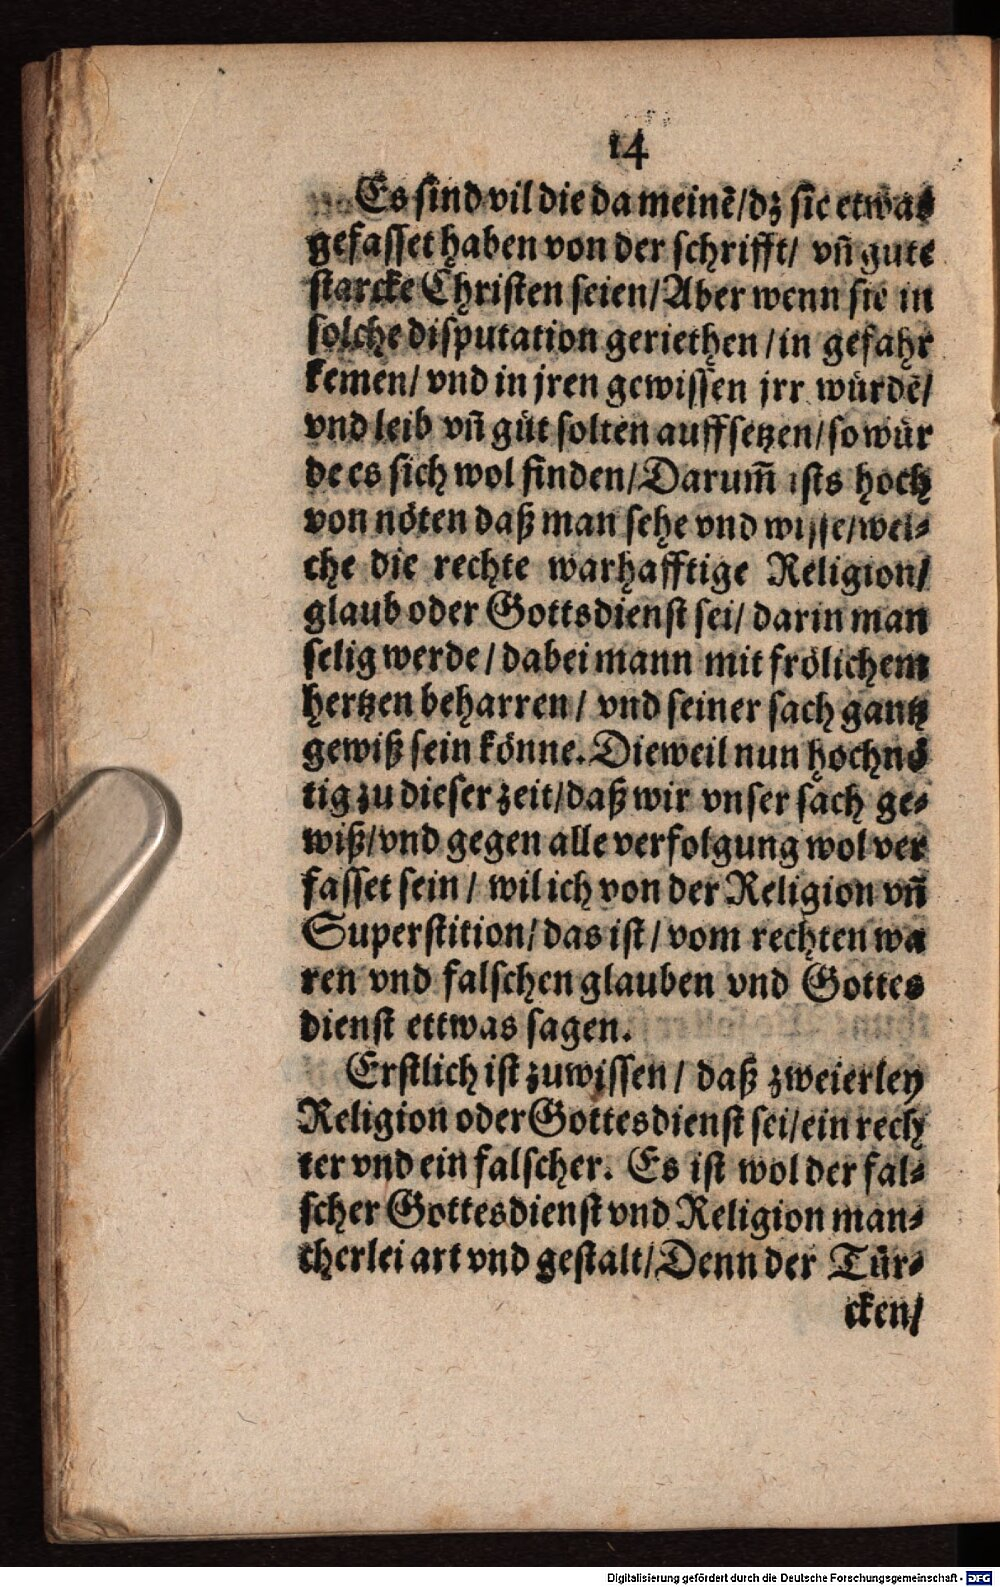 14
Es sind vil die da meinẽ/dz sie etwas
gefasset haben von der schrifft/ vñ gute
starcke Christen seien/Aber wenn sie in
solche disputation geriethen/in gefahr
kemen/ vnd in jren gewissen jrr würdẽ/
vnd leib vñ gůt solten auffsetzen/so wür
de es sich wol finden/Darum̃ ists hoch
von nöten daß man sehe vnd wisse/wel-
che die rechte warhafftige Religion/
glaub oder Gottsdienst sei/ darin man
selig werde/ dabei mann mit frölichem
hertzen beharren/ vnd seiner sach gantz
gewiß sein könne. Dieweil nun hochnö
tig zu dieser zeit/daß wir vnser sach ge-
wiß/vnd gegen alle verfolgung wol ver
fasset sein/ wil ich von der Religion vñ
Superstition/ das ist/ vom rechten wa
ren vnd falschen glauben vnd Gottes
dienst ettwas sagen.
Erstlich ist zuwissen/ daß zweierley
Religion oder Gottesdienst sei/ein rech
ter vnd ein falscher. Es ist wol der fal-
scher Gottesdienst vnd Religion man-
cherlei art vnd gestalt/Denn der Tür-
cken/
Digitalisierung gefördert durch die Deutsche Forschungsgemeinschaft - DFG